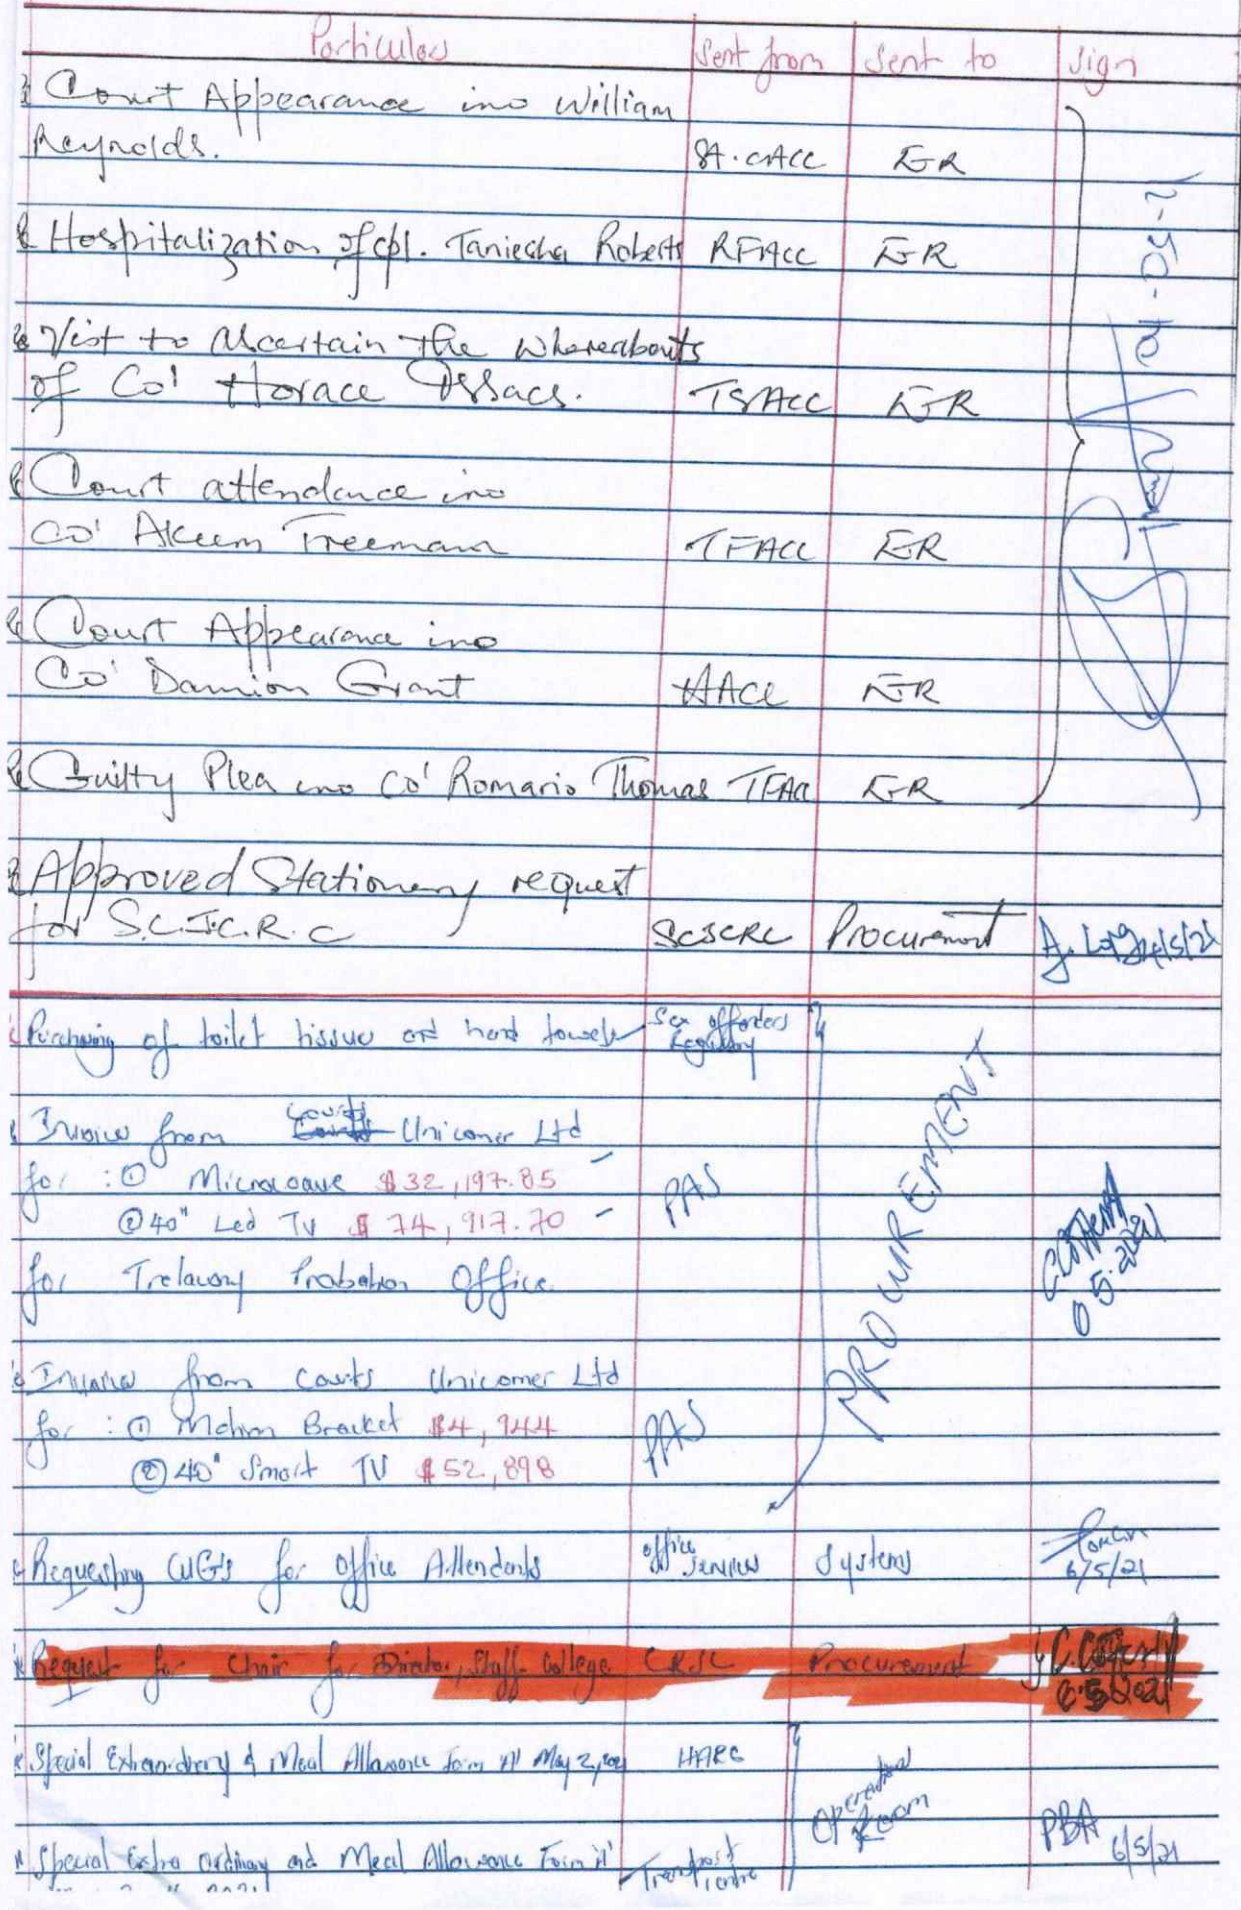 Particulars Sent from Sent to Sign
Court Appearance ino William
Reynolds. ER
Hospitalization of cpl. Taniesha Roberts RFACC ER
Visit to Ascertain the Whereabouts
of Co' Horace Issacs. TSACC ER
Court attendance ino
Co' Akeem Freeman TFACC ER
Court Appearance ino
Co' Damion Grant HACC ER
Guilty Plea ino Co' Romario Thomas TFACC ER
04-05-21
Approved Stationery request
for S.C.S.C.R.C SCSCRC Procurement 4/5/21
Purchasing of toilet tissue and hand towels Sex offenders
Registry
PROCUREMENT
Invoice from Courts Unicomer Ltd
for : ① Microwave $32,197.85 PAS
② 40" Led TV $ 74,917.70
for Trelawny Probation Office.
Invoice from Courts Unicomer Ltd
for : ① Motion Bracket $4,944 PAS
② 40" Smart TV $52,898
Requesting CUG's for Office Attendants Office Services Systems
6/5/21
Request for Chair for Director, Staff College Procurement
Special Extraordinary & Meal Allowance Form 'A' May 2, 2021 HARC
Operational
Room
PBA 6/5/21
Special Extra Ordinary and Meal Allowance Form 'A' Transport
Centre